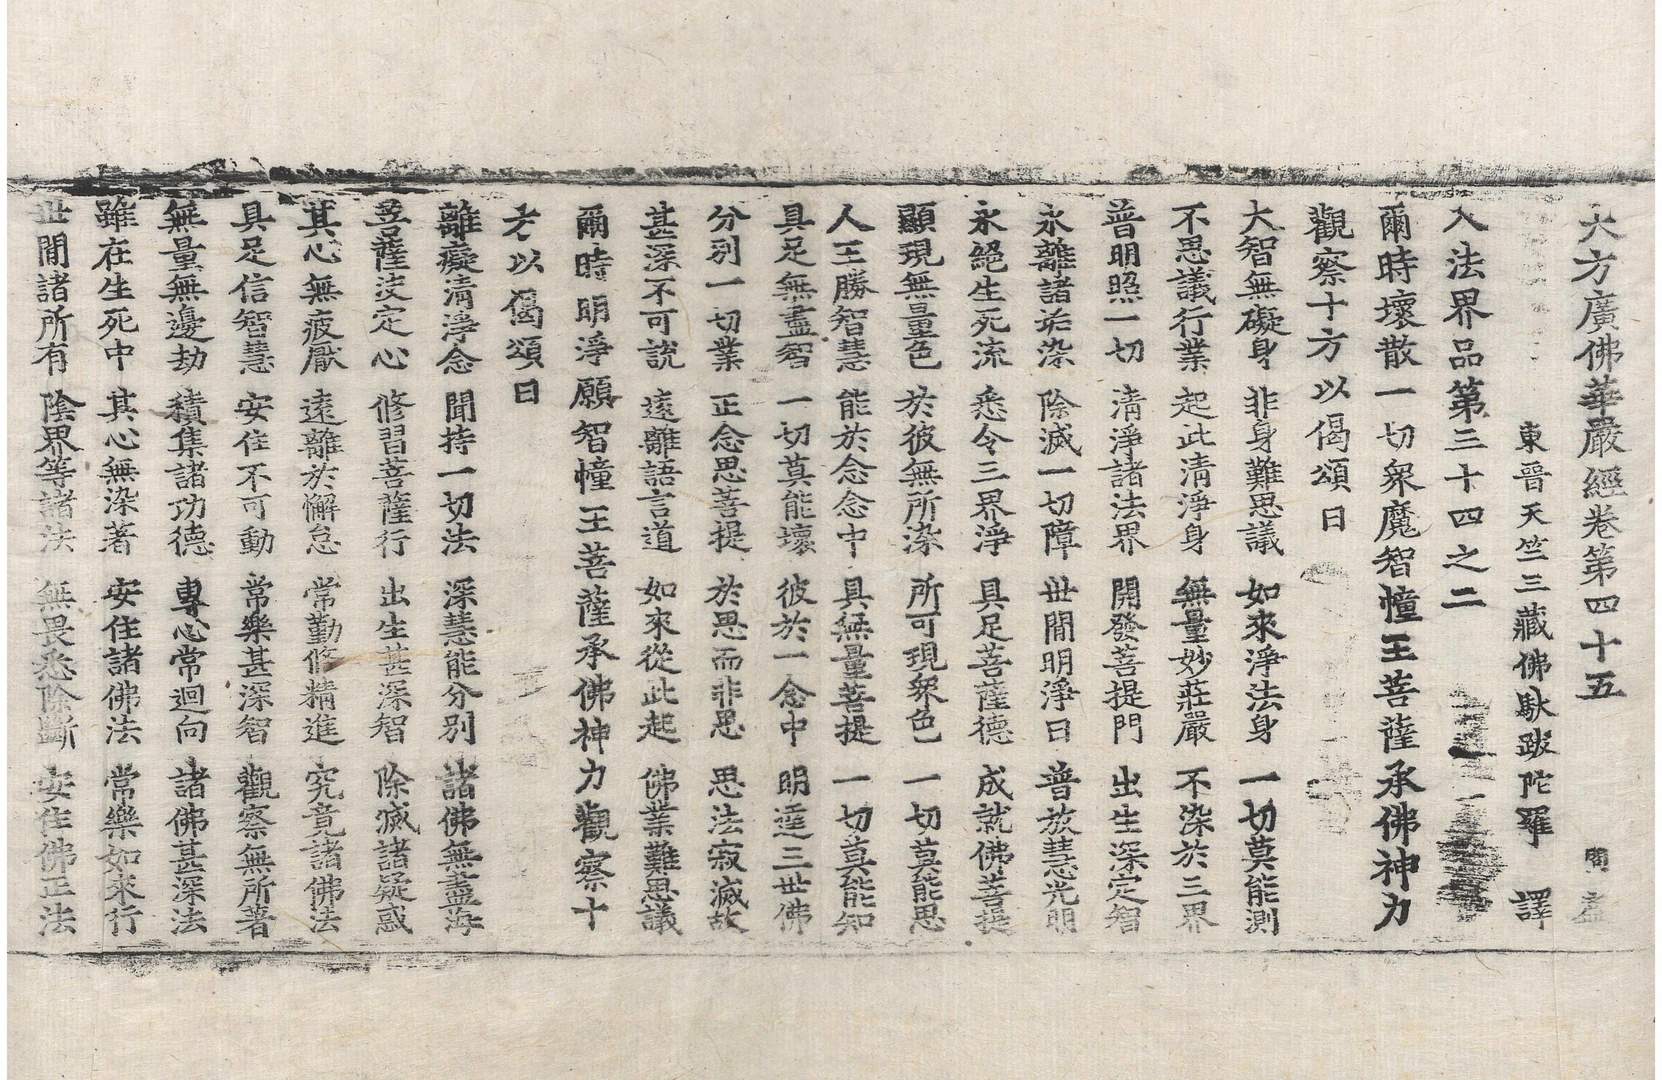 大方廣佛華嚴經卷第四十五
東晉天竺三藏佛馱跋陀羅 譯
入法界品第三十四之二
爾時壞散一切衆魔智幢王菩薩承佛神力
觀察十方以偈頌曰
大智無礙身 非身難思議 如來淨法身 一切莫能測
不思議行業 起此清淨身 無量妙莊嚴 不染於三界
普明照一切 清淨諸法界 開發菩提門 出生深定智
永離諸垢染 除滅一切障 世閒明淨日 普放慧光明
永絕生死流 悉令三界淨 具足菩薩德 成就佛菩提
顯現無量色 於彼無所染 所可現衆色 一切莫能思
人王勝智慧 能於念念中 具無量菩提 一切莫能知
具足無盡智 一切莫能壞 彼於一念中 明達三世佛
分別一切業 正念思菩提 於思而非思 思法寂滅故
甚深不可說 遠離語言道 如來從此起 佛業難思議
爾時明淨願智幢王菩薩承佛神力觀察十
方以偈頌曰
離癡淸淨念 聞持一切法 深慧能分別 諸佛無盡海
菩薩決定心 修習菩薩行 出生甚深智 除滅諸疑惑
其心無疲厭 遠離於懈怠 常勤修精進 究竟諸佛法
具足信智慧 安住不可動 常樂甚深智 觀察無所著
無量無邊劫 積集諸功德 專心常迴向 諸佛甚深法
雖在生死中 其心無染著 安住諸佛法 常樂如來行
世閒諸所有 陰界等諸法 無畏悉除斷 安住佛正法